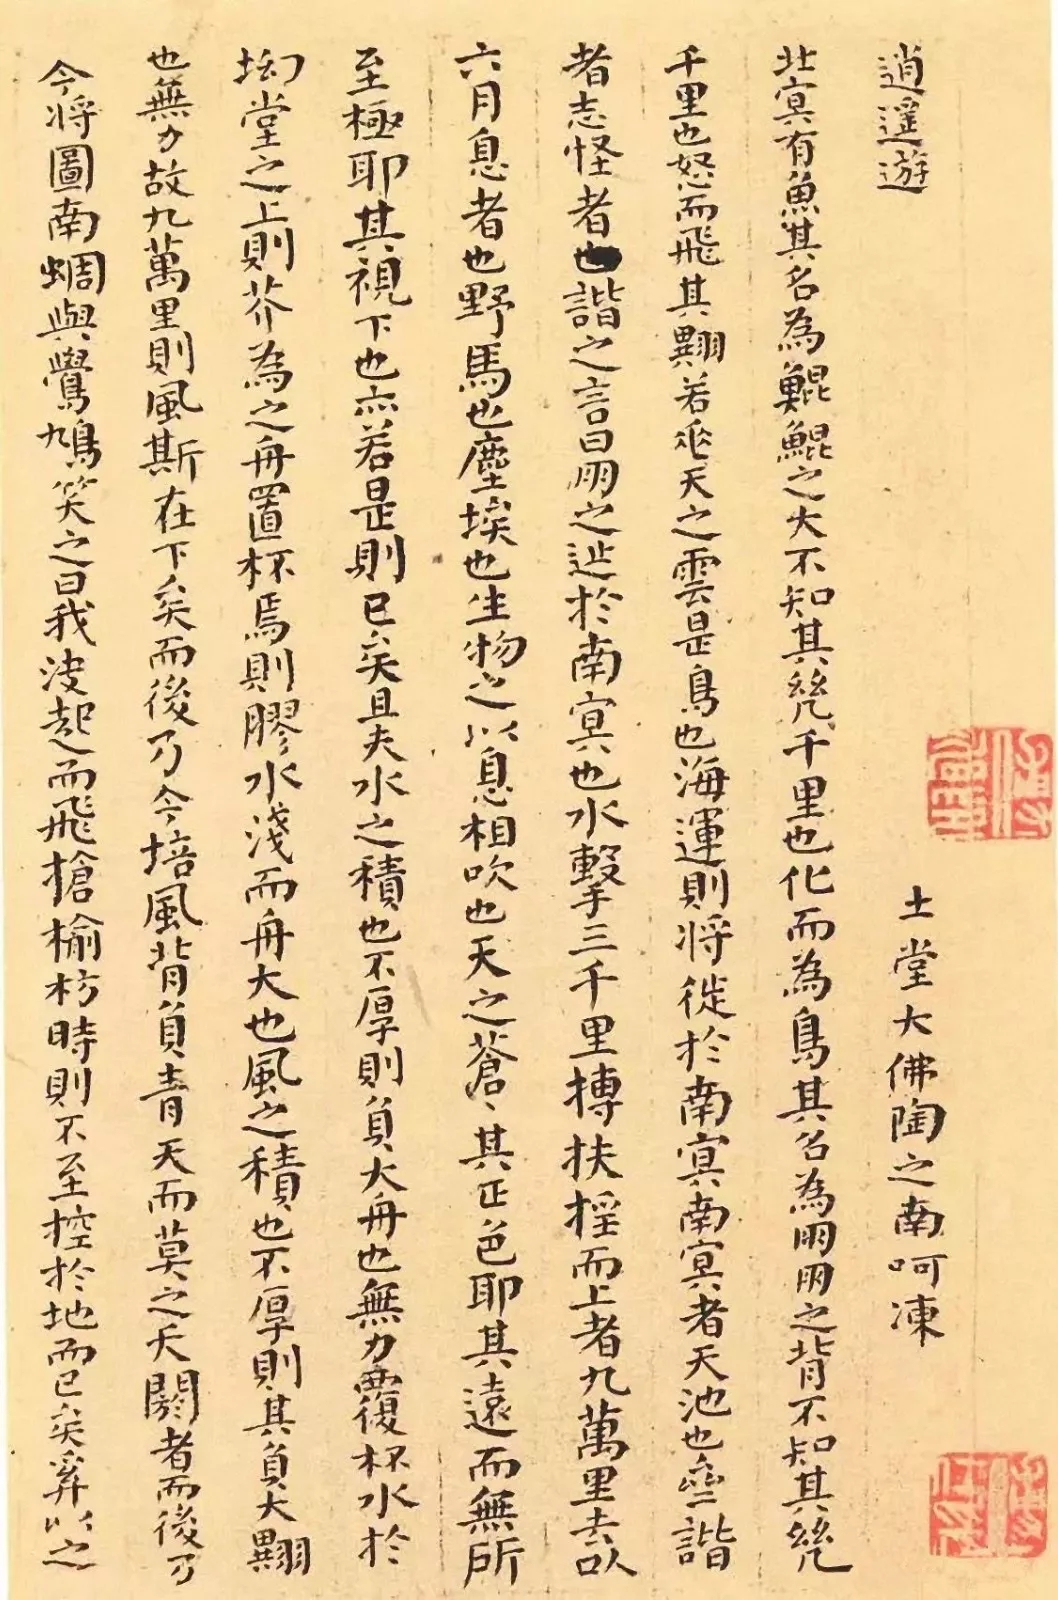 逍遥遊
土堂大佛陶之南呵凍
北冥有魚其名為鯤鯤之大不知其幾千里也化而為鳥其名為朋朋之背不知其幾
千里也怒而飛其翾若垂天之雲是鳥也海運則将徙於南冥南冥者天池也齊諧
者志怪者也諧之言曰朋之逃於南冥也水擊三千里摶扶摇而上者九萬里去以
六月息者也野馬也塵埃也生物之以息相吹也天之蒼〻其正色耶其遠而無所
至極耶其視下也亦若是則已矣且夫水之積也不厚則負大舟也無力覆杯水於
坳堂之上則芥為之舟置杯焉則膠水淺而舟大也風之積也不厚則其負大翾
也無力故九萬里則風斯在下矣而後乃今培風背負青天而莫之夭閼者而後乃
今将圖南蜩與鷽鳩笑之曰我决起而飛搶榆枋時則不至控於地而已矣奚以之